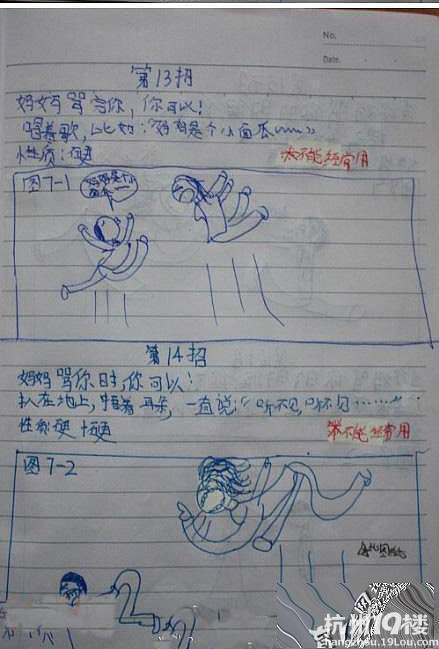 No.
Date.
第13招
妈妈骂你,你可以!
唱着歌,比如:妈妈是个小面瓜~~~
性质:硬
不能经常用
图7-1
第14招
妈妈骂你时,你可以!
趴在地上,捂着耳朵,一直说:"听不见,听不见……"
性质硬+硬
不能经常用
图7-2
杭州19楼
hangzhou.19Lou.com